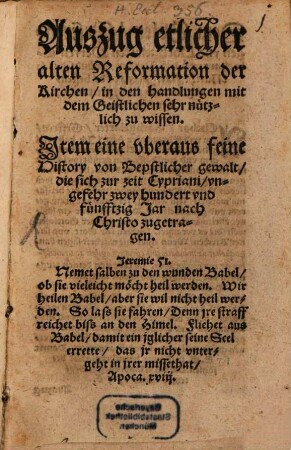 H. Eccl. 356
Auszug etlicher
alten Reformation der
Kirchen/ in den handlungen mit
dem Geistlichen sehr nütz-
lich zu wissen.
Item eine vberaus feine
History von Bepstlicher gewalt/
die sich zur zeit Cypriani/ vn-
gefehr zwey hundert vnd
fünfftzig Jar nach
Christo zugetra-
gen.
Jeremie 51.
Nemet salben zu den wunden Babel/
ob sie vieleicht möcht heil werden. Wir
heilen Babel/ aber sie wil nicht heil wer-
den. So laſs sie fahren/ Denn jre straff
reichet biſs an den Himel. Fliehet aus
Babel/ damit ein jglicher seine Seel
errette/ das jr nicht vnter-
geht in jrer missethat/
Apoca. xviij.
Bayerische
Staatsbibliothek
München